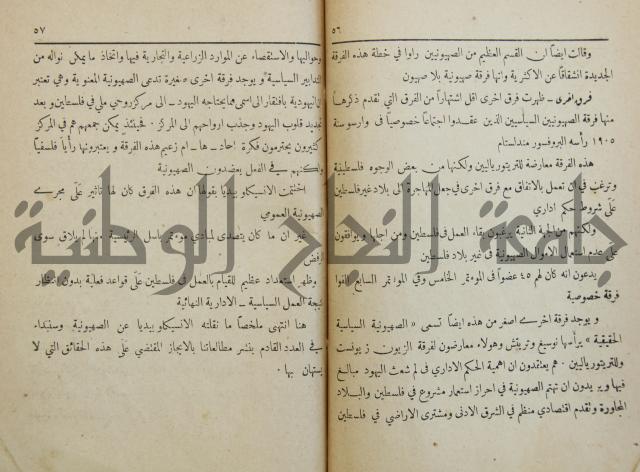 ٥٦
وقالت ايضاً ان القسم العظيم من الصهيونيين راوا في خطة هذه الفرقة
الجديدة انشقاقاً عن الاكثرية وانها فرقة صهيونية بلا صهيون
فرق اخرى - ظهرت فرق اخرى اقل اشتهاراً من الفرق التي تقدم ذكرها
منها فرقة الصهيونيين السياسيين الذين عقدوا اجتماعاً خصوصياً في وارسو سنة
١٩٠٥ رأسه البروفسور مندلستام
هذه الفرقة معارضة للتريتورياليين ولكنها من بعض الوجوه فلسطينية
وترغب في ان تعمل بالاتفاق مع فرق اخرى في جعل المهاجرة الى بلاد غير فلسطين
على شروط حكم اداري
ولكنهم من الجهة الثانية يرغبون بقاء العمل في فلسطين ومن اجلها ويوافقون
على عدم استعمال الاموال الصهيونية في غير بلاد فلسطين
يدعون انه كان لهم ٤٥ عضواً في الموءتمر الخامس وفي الموءتمر السابع الفوا
فرقة خصوصية
و يوجد فرقة اخرى اصغر من هذه ايضاً تسمى « الصهيونية السياسية
الحقيقية » يرأسها نوسيغ وتريتش وهولاء معارضون لفرقة الزيون زيونست
وللتريتورياليين . هم يعتقدون ان اهمية الحكم الاداري في لم شعث اليهود مبالغ
فيها ويريدون ان تهتم الصهيونية في احراز استعمار مشروع في فلسطين والبلاد
المجاورة وتقدم اقتصادي منظم في الشرق الادنى ومشترى الاراضي في فلسطين
٥٧
وحواليها والاستقصاء عن الموارد الزراعية والتجارية فيها واتخاذ ما يمكن نواله من
التدابير السياسية و يوجد فرقة اخرى صغيرة تدعى الصهيونية المعنوية وهي تعتبر
ان اليهودية بافتقار الى اسمى مما يحتاجه اليهود - الى مركز روحي ملي في فلسطين و بعد
تجديد قلوب اليهود وجذب ارواحهم الى المركز . فحينئذ يمكن جمعهم هم في المركز
كثيرون يحترمون فكرة احاد - ها - ام زعيم هذه الفرقة و يعتبرونها رأياً فلسفياً
ولكنهم في الفعل يعضدون الصهيونية
اختتمت الانسيكلوبيديا بقولها ان هذه الفرق كان لها تاثير على مجرى
الصهيونية العمومي
غير ان ما كان يتصدى لمبادي موءتمر باسل الرئيسية منها لم يلاق سوى
الرفض
وظهر استعداد عظيم للقيام بالعمل في فلسطين على قواعد فعلية بدون انتظار
نتيجة العمل السياسية - الادارية النهائية
هنا انتهى ملخصاً ما نقلته الانسيكلوبيديا عن الصهيونية وسنبداء
في العدد القادم بنشر مطالعاتنا بالايجاز المقتضي على هذه الحقائق التي لا
يستهان بها .
جامعة النجاح الوطنية